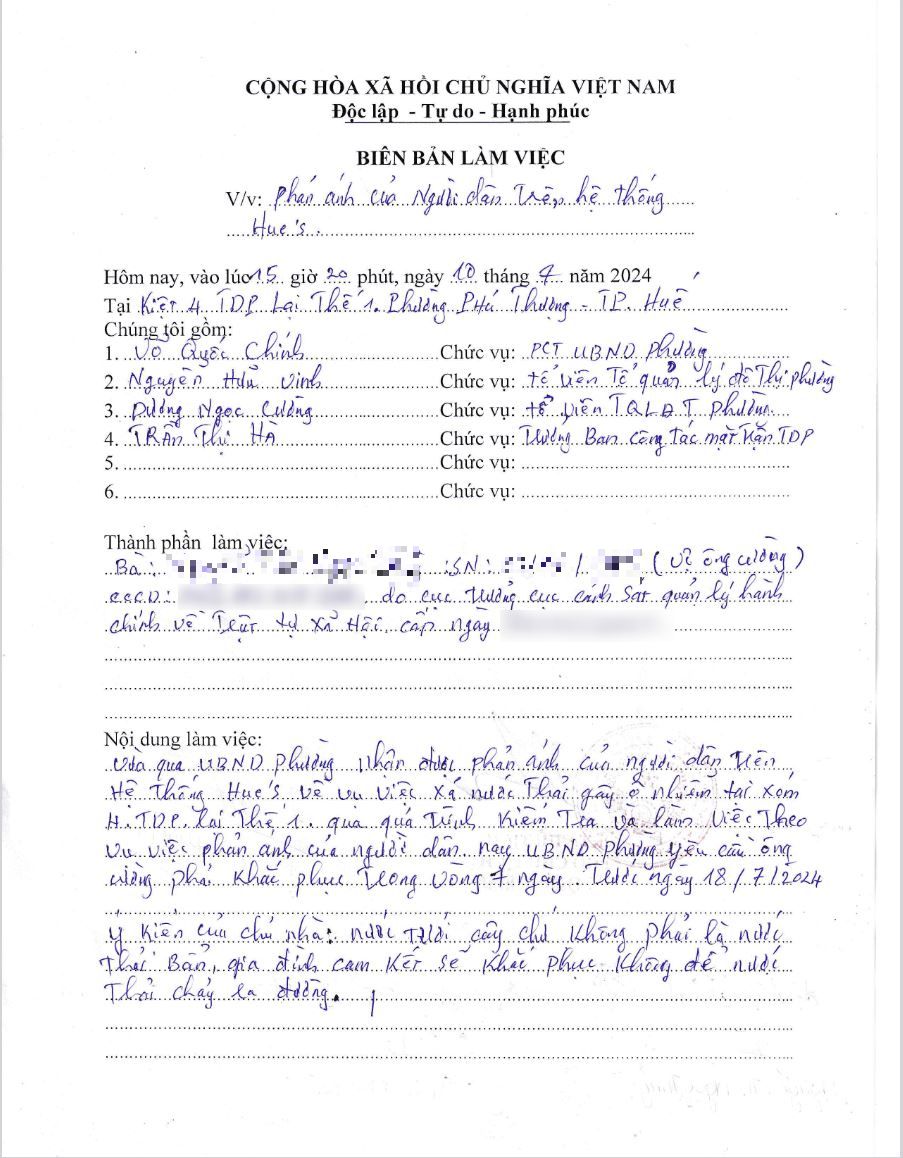 CỘNG HÒA XÃ HỒI CHỦ NGHĨA VIỆT NAM
Độc lập - Tự do - Hạnh phúc
BIÊN BẢN LÀM VIỆC
V/v: Phản ánh của Người dân trên hệ thống
Hue's.
Hôm nay, vào lúc 15 giờ 20 phút, ngày 10 tháng 7 năm 2024
Tại Kiệt 4 TDP Lại Thế 1. Phường Phú Thượng - TP. Huế
Chúng tôi gồm:
1. Võ Quốc Chính Chức vụ: PCT UBND phường
2. Nguyễn Hữu Vinh Chức vụ: tổ viên Tổ quản lý đô Thị phường
3. Dương Ngọc Cường Chức vụ: tổ viên TQLĐT phường
4. TRẦN Thị HÀ Chức vụ: Trưởng Ban công tác mặt trận TDP
5. Chức vụ:
6. Chức vụ:
Thành phần làm việc:
Bà: :SN: / (Vợ ông cường)
CCCD: do cục trưởng cục cảnh sát quản lý hành
chính về Trật tự xã Hội cấp ngày
Nội dung làm việc:
Vừa qua UBND Phường Nhận được phản ánh của người dân trên
Hệ Thống Hue's về vụ việc Xả nước Thải gây ô nhiễm tại xóm
4. TDP. Lại Thế 1. qua quá Trình Kiểm Tra và làm Việc Theo
vụ việc phản ánh của người dân. nay UBND Phường yêu cầu ông
cường phải Khắc phục Trong vòng 7 ngày. Trước ngày 18/7/2024
Ý Kiến của chủ nhà: nước Tưới cây chứ Không phải là nước
Thải Bẩn, gia đình cam Kết sẽ Khắc phục Không để nước
Thải chảy ra đường.